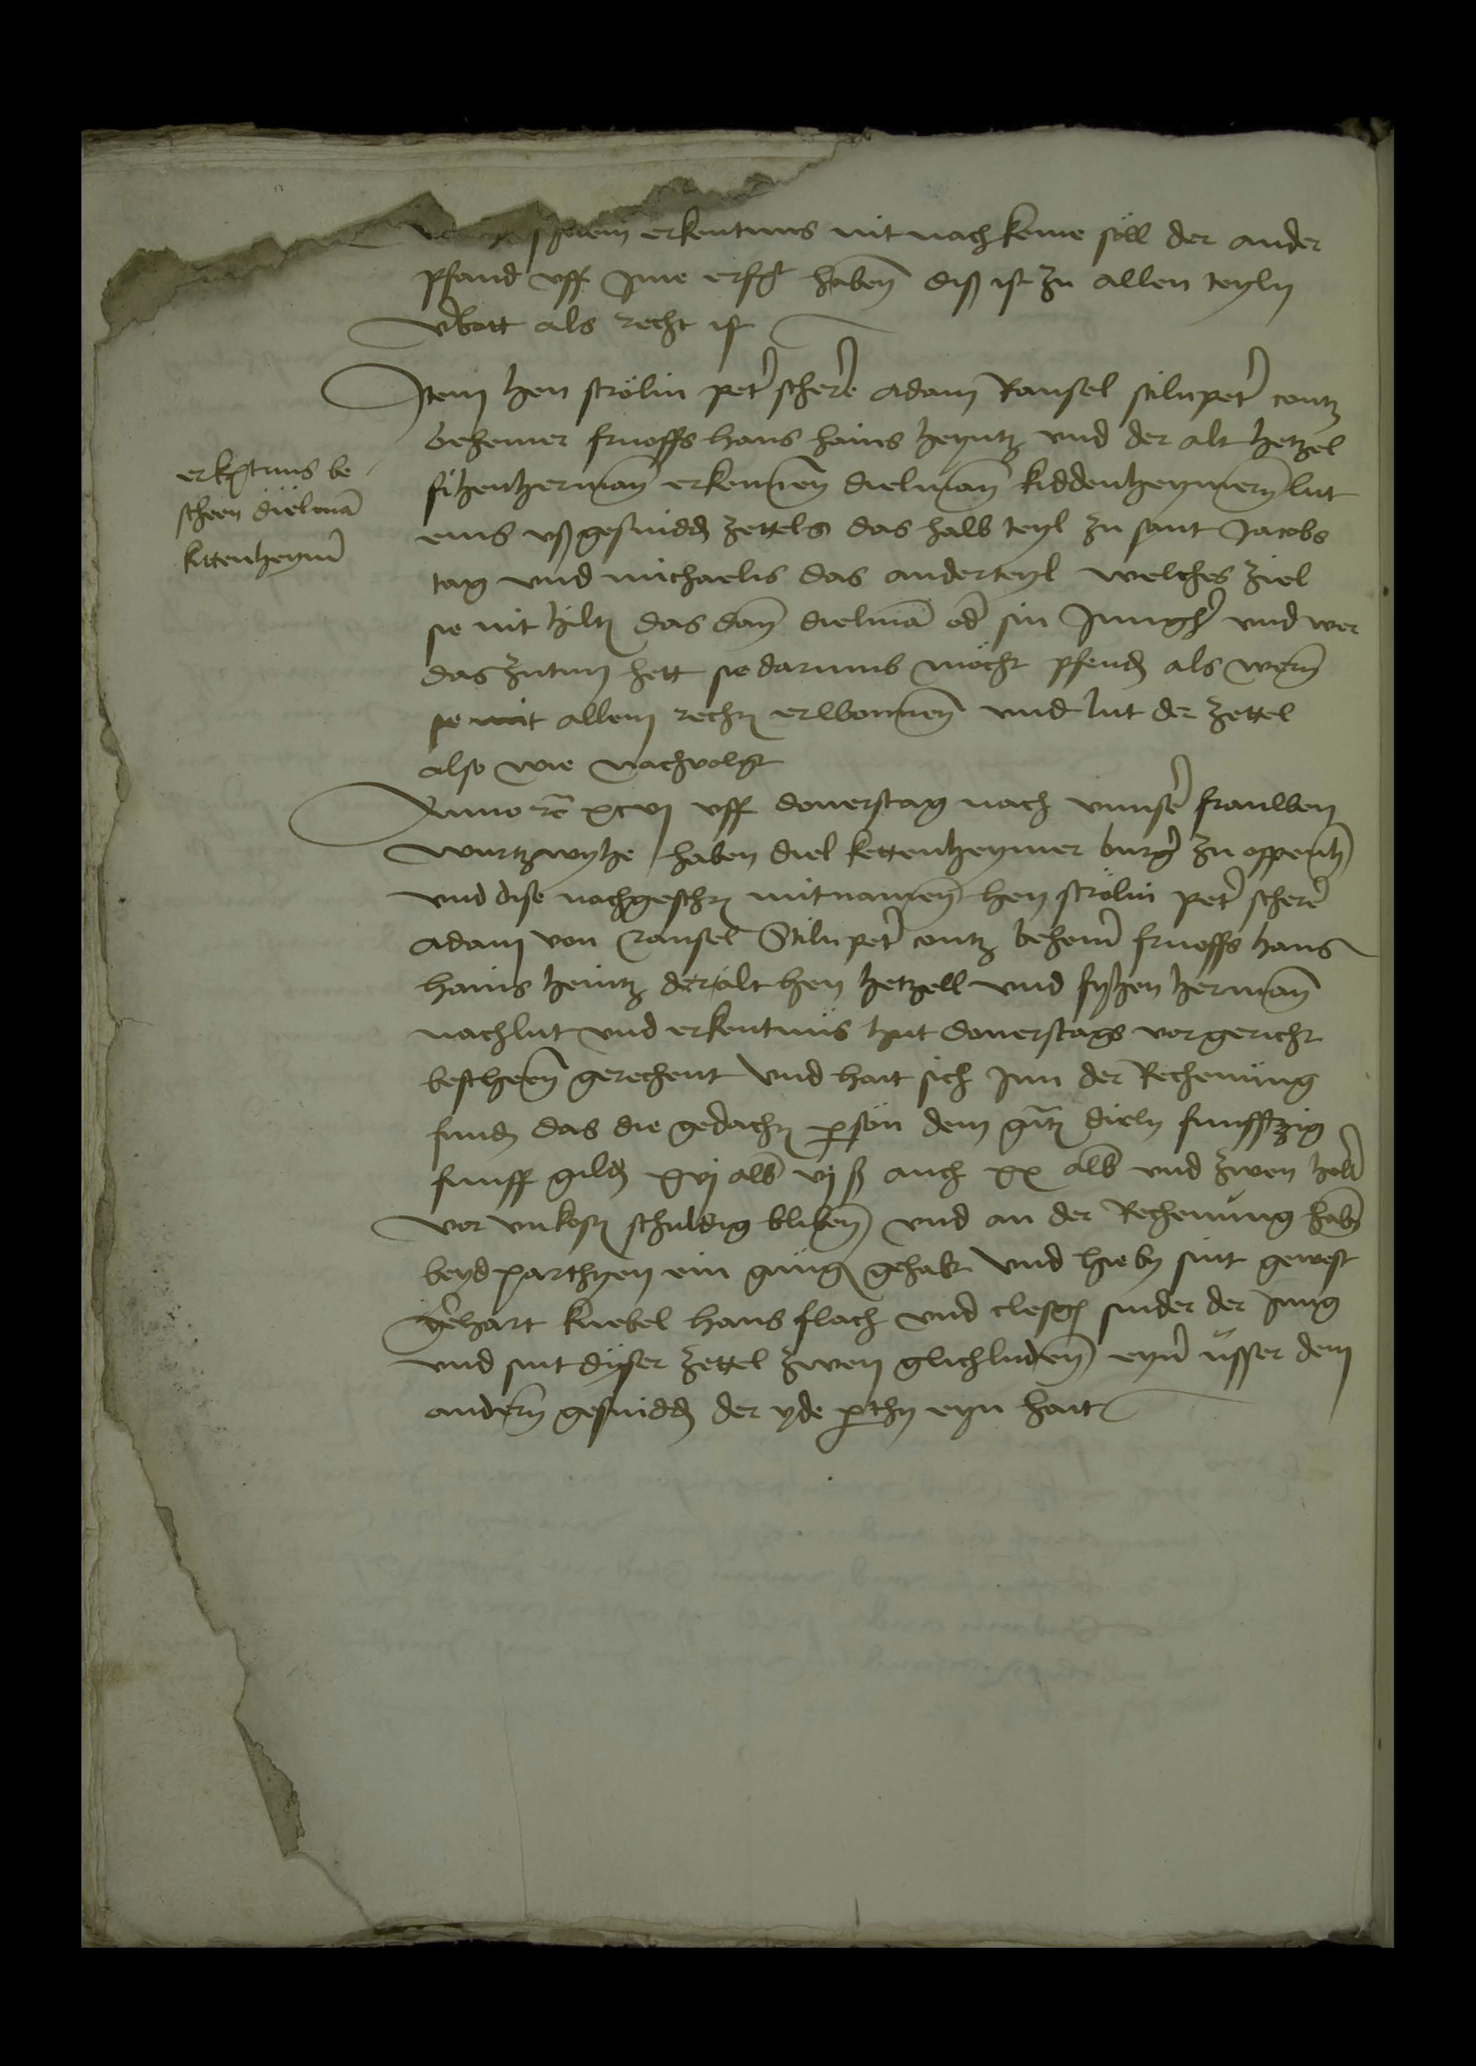 sinem erkentnus nit nach keme söll der ander
pfand uff Jme erfolgt haben diß ist zu allen teyln
v̓bott als recht ist
Item hen strölin pet̓ scher̓e adam Ransel stilnpet̓ contz
behemer fruoffs hans hans heyntz und der alt hetzel
fihenhermañ erkennen dielmañ kiddenheymern lut
eins ußgesnidd zettels das halb teyl zu sant Jacobs
tag und michaelis das anderteyl welches ziel
sie nit hiltn das dañ dielmā od̓ sin Jungh̓ und wer
das zutun hett sie darumb möcht pfenden als wern
sie mit allem rechtn erwonnen und lut der zettel
also wie nachvolgt
erkentnus be
scheen dielmā
kittenheym̓
Anno rc̄ xcvj uff donerstag nach unnser̓ frauwen
wurtzwyhe haben diel kettenheymer burg̓ zu oppenh̓
und dise nachgeschrn mitnamen hen strölin pet̓ scher̓e
adam von Ransel Stilnpet̓ contz behem̓ fruoffs hans
hans heintz der alt hen hetzell und fyhen hermañ
nachlut und erkentnüs hut donerstags vor gericht
bescheen gerechent und hait sich Inn der Rechenüng
funden das die gedachtn ꝑson dem gn̄tn dieln funfftzig
funff gulden xvj alb vj ß auch xx alb und zwen hell̓
vor unkostn schuldig bliben und an der Rechenüng habn
beyd parthyen ein gnügen gehabt und hie by sint gewest
gerhart knebel hans flach und clesgin sinder der Jung
und sint dyser zettel zwen glichludenn eyn̓ üsser dem
andern gesnidden der yde ꝑthy eyn hait